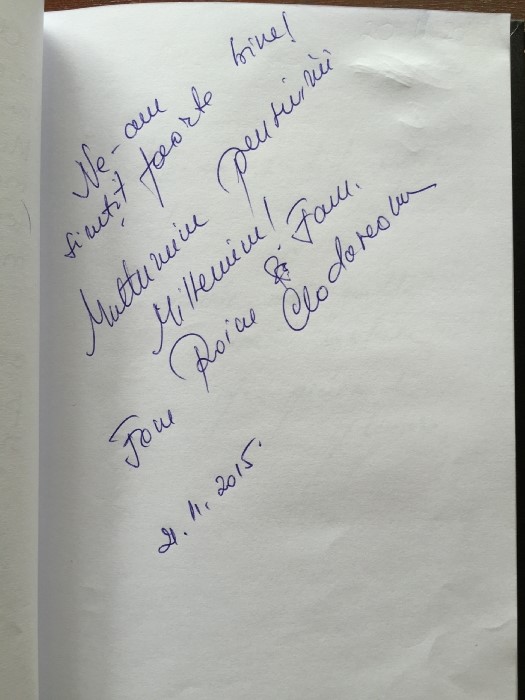 Ne-am
simțit foarte bine!
Multumim pensiunii
Millenium!
Fam Roiu & Fam.
Clodareanu
21.11.2015.